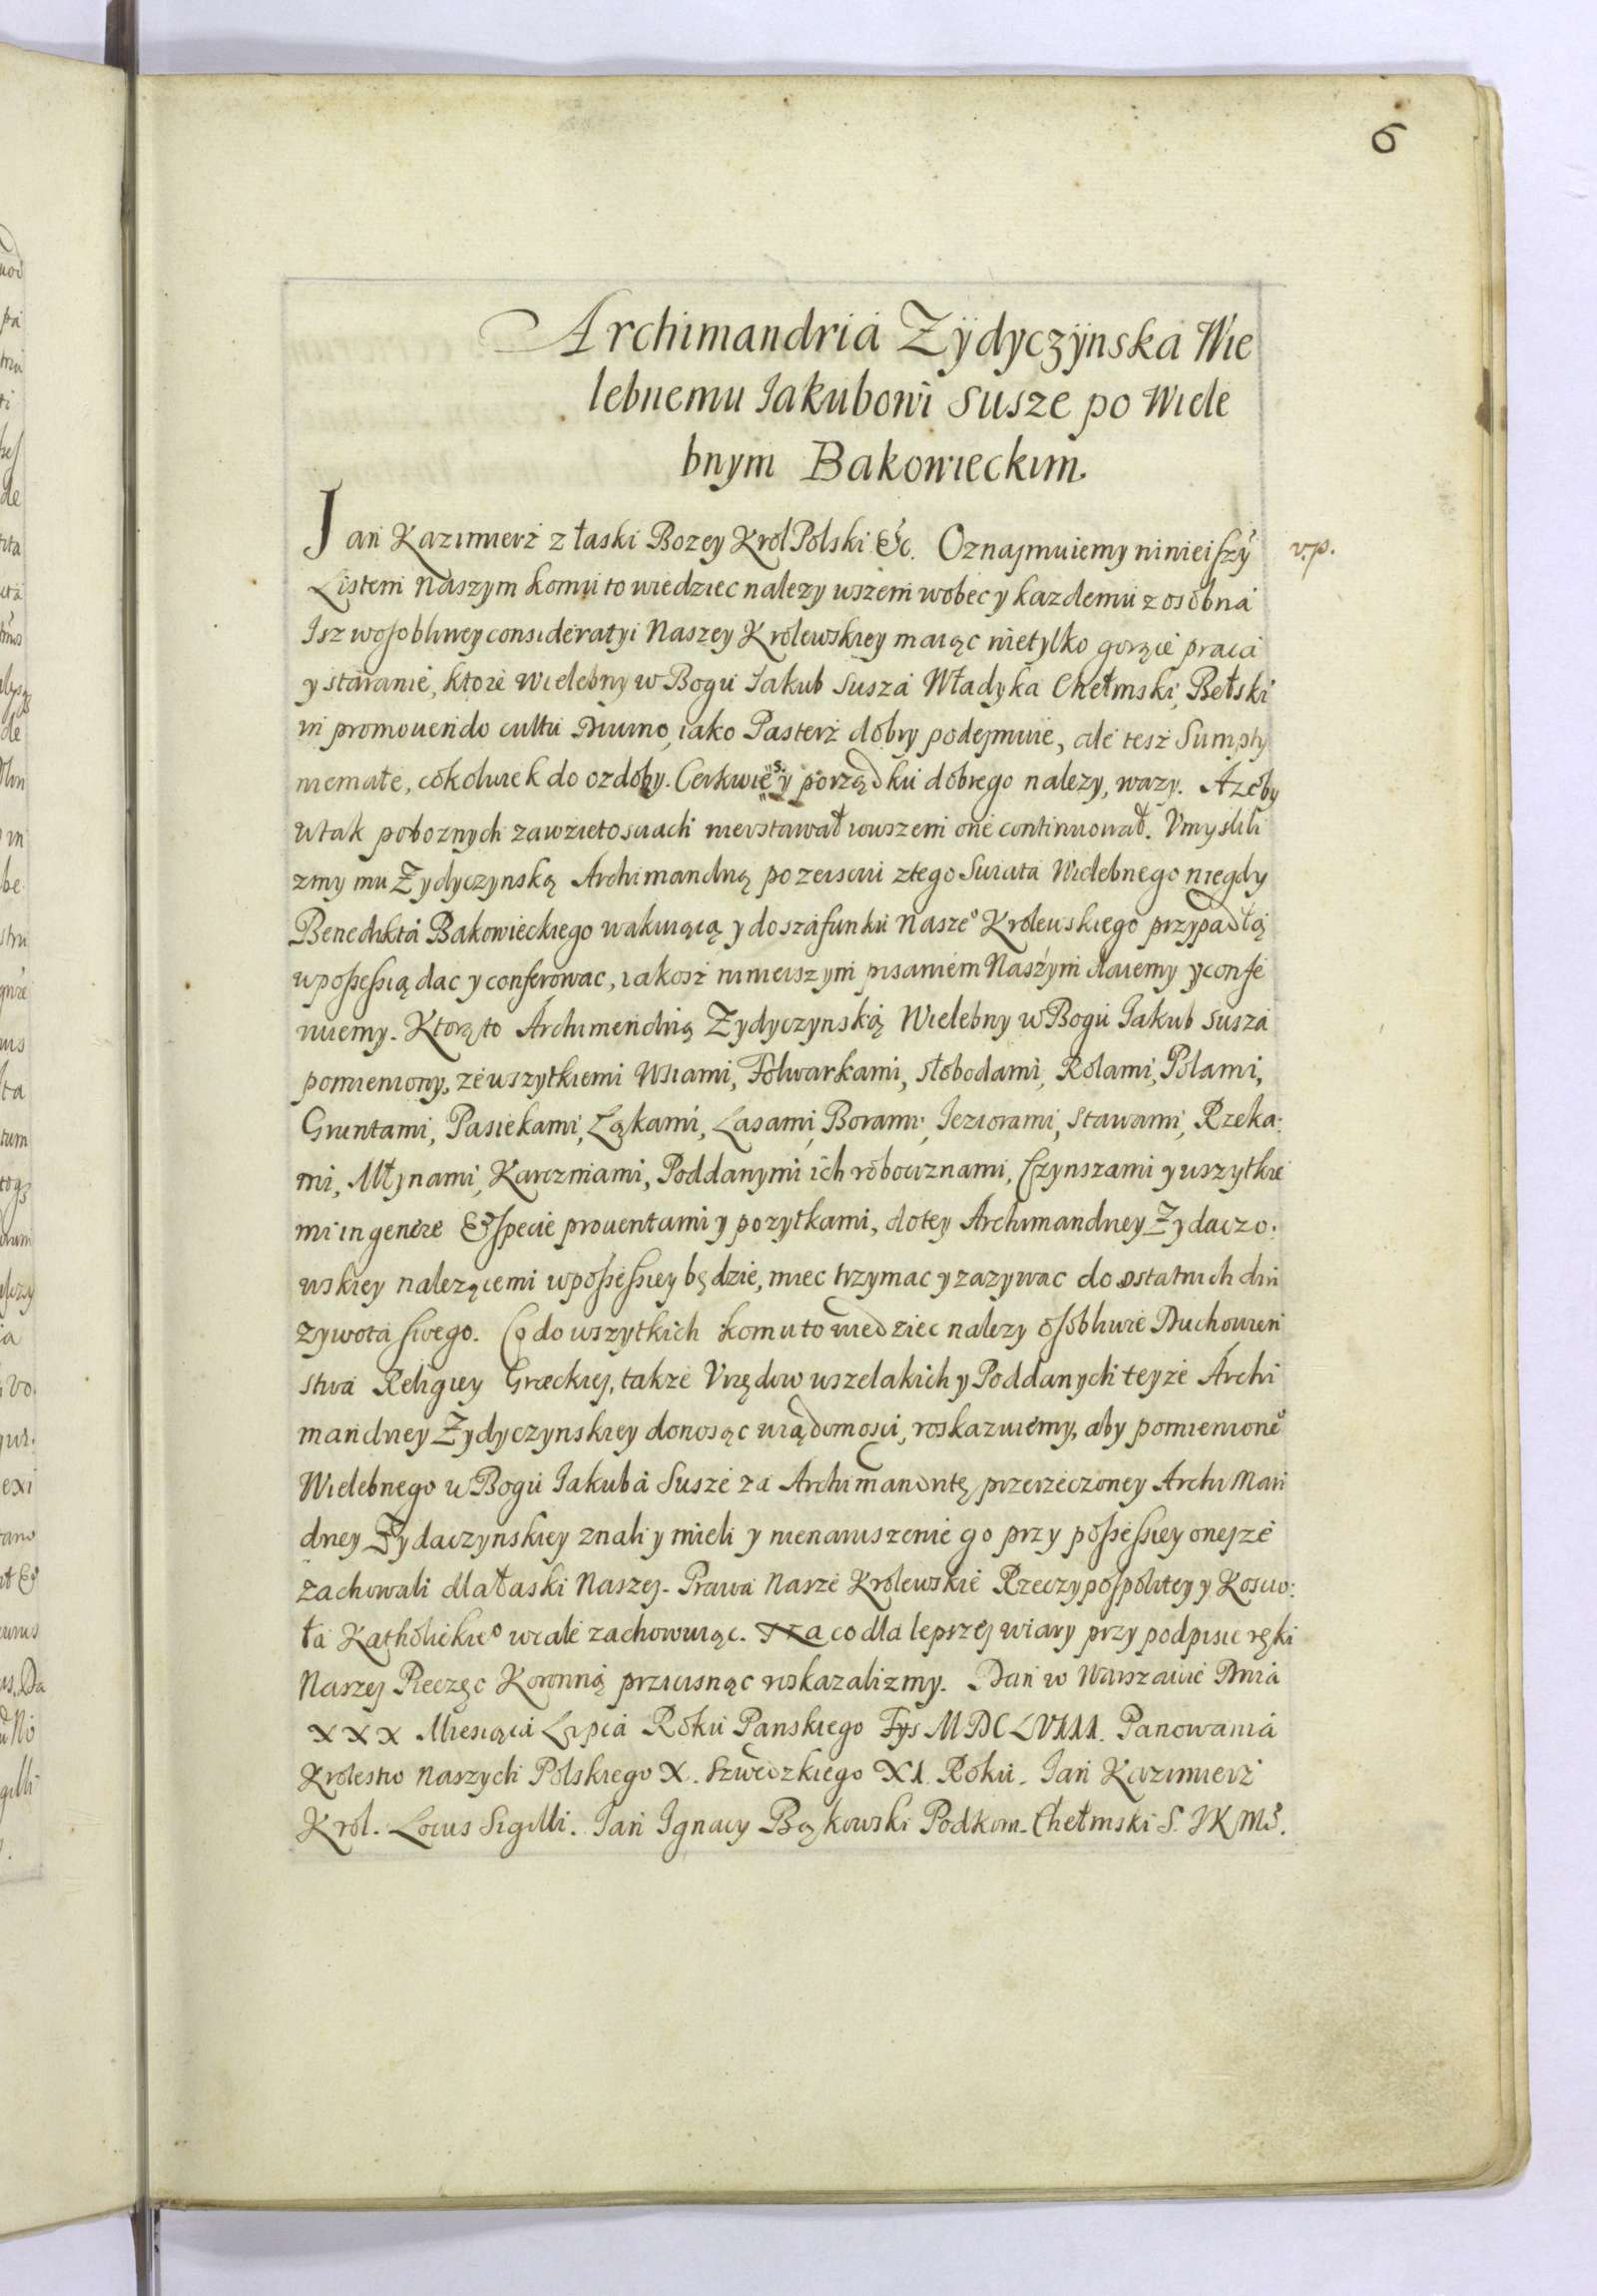 6
Archimandria Zÿdyczÿnska Wie
lebnemu Jakubowi Susze po Wiele
bnym Bakowieckim.
Jan Kazimierz z łaski Bozey Krol Polski &c. Oznajmuiemy ninieiszy
v.p.
Listem Naszym komu to wiedziec nalezy wszem wobec y kazdemu z osobna
Isz w osobliwey consideratyi Naszey Krolewskiey maiąc nietylko gorące praca
y staranie, ktore Wielebny w Bogu Jakub Susza Władyka Chełmski, Bełski
in promouendo cultu Diuino, iako Pasterz dobry podejmuie, ale tesz Sumpty
niemałe, cokolwiek do ozdoby. Cerkwie s. y porządku dobrego nalezy, wazy. Azeby
w tak poboznych zawzietosciach nieustawał iowszem one continuował. Vmyslili
zmy mu Zydyczynską Archimandrią po zeisciu z tego Swiata Wielebnego niegdy
Benedikta Bakowieckiego wakuiącą y do szafunku Nasze° Krolewskiego przypadłą
w possessią dac y conferowac, iakosz ninieiszym pisaniem Naszym daiemy y confe
ruiemy. Ktorą to Archimendrią Zydyczynską Wielebny w Bogu Jakub Susza
pomieniony, ze wszytkiemi Wsiami, Folwarkami, Słobodami, Rolami, Polami,
Gruntami, Pasiekami, Łąkami, Lasami, Borami, Jeziorami, Stawami, Rzeka:
mi, Młynami, Karczmami, Poddanymi ich robociznami, Czynszami y wszytkie
mi in genere & specie prouentami y pozytkami, do tey Archimandriey Zydaczo:
wskiey nalezącemi w possessiey będzie, miec trzymac y zazywac do ostatnich dni
zywota swego. Co do wszytkich komu to wiedziec nalezy osobliwie Duchowien
stwa Religiey Græckiej, takze Vrzędow wszelakich y Poddanych teyze Archi
mandriey Zydyczynskiey donosząc wiadomosci, roskazuiemy, aby pomienione°
Wielebnego w Bogu Jakuba Susze za Archimandritę, przerzeczoney Archi Man
driey Zydaczynskiey znali y mieli y nienaruszenie go przy possessiey onejze
zachowali dla łaski Naszej. Prawa Nasze Krolewskie Rzeczypospolitey y Koscio:
ła Katholickie° wcale zachowuiąc. Na co dla leprzej wiary przy podpisie ręki
Naszej Pieczęc Koronną przycisnąc roskazalizmy. Dan w Warszawie Dnia
XXX Miesiąca Lipca Roku Panskiego MDCLVIII. Panowania
Krolestw Naszych Polskiego X. Szwedzkiego XI. Roku. Jan Kazimierz
Krol. Locus Sigilli. Jan Ignacy Bąkowski Podkom. Chełmski S. JK Mś.